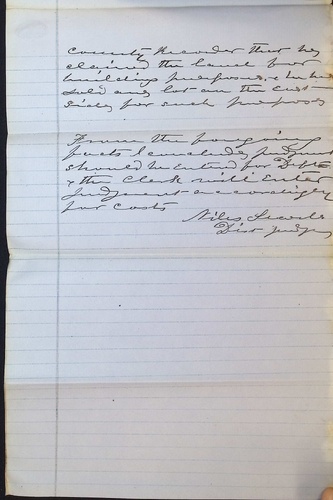 County Recorder that he
claimed the land for
building purposes, & he had
sold and lot on the East
side for such purposes
From the foregoing
facts I conclude, Judgment
should be entered for Defts
& the Clerk will Enter
Judgement accordingly
for costs
Niles Searls
Dist Judge